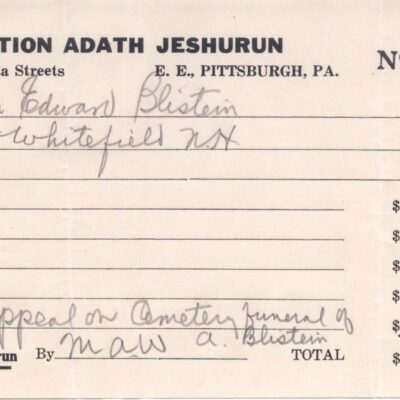 TION ADATH JESHURUN
a Streets E. E., PITTSBURGH, PA. No
Edward Blistein
Whitefield NH
$
$
$
$
$
Appeal on Cemetery funeral of
A. Blistein
run By MAW TOTAL $